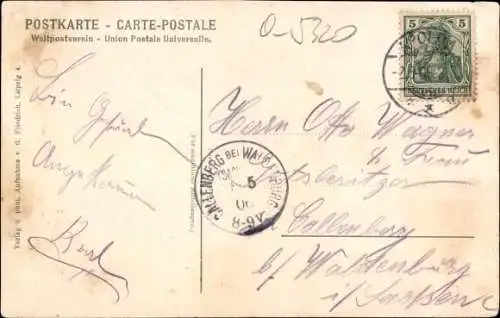 POSTKARTE - CARTE-POSTALE
Weltpostverein - Union Postale Universelle.
O-5320
5 5
DEUTSCHES REICH
Herrn Otto Wagner
u. Frau
Gutsbesitzer
in Callenberg
b/ Waldenburg
i/ Sachsen
CALLENBERG BEI WALDENBURG
5
06
8-9V
Gesund
Angekommen
Verlag u. phot. Aufnahme v. G. Friedrich, Leipzig 4.